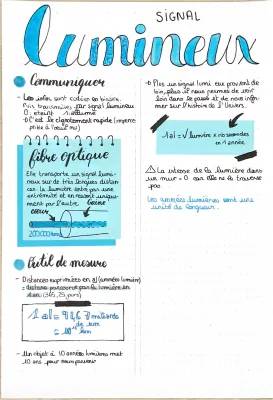 SIGNAL
Lumineux
Communiquer
- Les infos sont codées en binaire.
Nos transmises par signal lumineux
0: éteint 1: allumé
→ C'est le clignotement rapide (imperce
ptible à l'oeil nu)
fibre optique
Elle transporte un signal lumi-
neux sur de très longues distan
ces. La lumière entre par une
extrémité et en ressort unique-
ment par l'autre
gaine
coeur
200 000 km/s
Outil de mesure
- Distances exprimées en al (années lumière)
= distance parcourue par la lumière en
1 an (365,25 jours)
1 al = 9,4 milliards
de km
km
- Un objet à 10 années lumières met
10 ans pour nous parvenir
- Plus un signal lumi. eux provient de
loin, plus il nous permet de voir
loin dans le passé et de nous infor
mer sur l'histoire de l'Univers.
1 al = √ lumière x nb secondes
en 1 année
⚠ La vitesse de la lumière dans
un mur = 0 car elle ne le traverse
pas
Les années lumières sont une
unité de longueur.